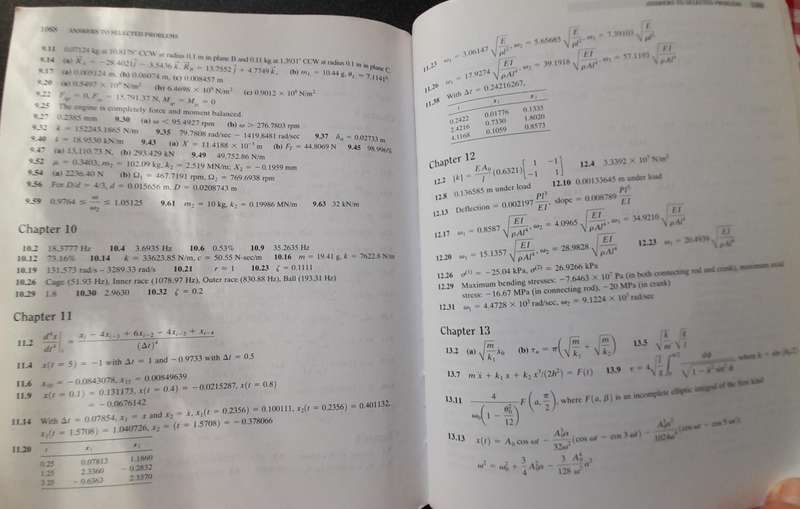 1088 ANSWERS TO SELECTED PROBLEMS
9.11 0.07124 kg at 10.8179° CCW at radius 0.1 m in plane B and 0.11 kg at 1.3931° CCW at radius 0.1 m in plane C
9.14 (a) R_A = −28.4021j − 3.5436 k, R_B = 13.7552 j + 4.7749k, (b) m₁ = 10.44 g, θ₁ = 7.1141°
9.17 (a) 0.005124 m, (b) 0.06074 m, (c) 0.008457 m
9.20 (a) 0.5497 × 10⁹ N/m² (b) 6.4698 × 10⁹ N/m² (c) 0.9012 × 10⁹ N/m²
9.22
9.25 The engine is completely force and moment balanced.
9.27 0.2385 mm 9.30 (a) ω < 95.4927 rpm (b) ω > 276.7803 rpm
9.32 k = 152243.1865 N/m 9.35 79.7808 rad/sec − 1419.8481 rad/sec 9.37 = 0.02733 m
9.40 k = 18.9530 kN/m 9.43 (a) X = 11.4188 × 10⁻⁵ m (b) F_T = 44.8069 N 9.45 98.996%
9.47 (a) 13,110.73 N, (b) 293.429 kN 9.49 49,752.86 N/m
9.52 μ = 0.3403, m₂ = 102.09 kg, k₂ = 2.519 MN/m, X₂ = −0.1959 mm
9.54 (a) 2236.40 N (b) Ω₁ = 467.7191 rpm, Ω₂ = 769.6938 rpm
9.56 For D/d = 4/3, d = 0.015656 m, D = 0.0208743 m
9.59 0.9764 ≤ ω/ω₂ ≤ 1.05125 9.61 m₂ = 10 kg, k₂ = 0.19986 MN/m 9.63 32 kN/m
Chapter 10
10.2 18.3777 Hz 10.4 3.6935 Hz 10.6 0.53% 10.9 35.2635 Hz
10.12 73.16% 10.14 k = 33623.85 N/m, c = 50.55 N-sec/m 10.16 m = 19.41 g, k = 7622.8 N/m
10.19 131.573 rad/s − 3289.33 rad/s 10.21 r = 1 10.23 ζ = 0.1111
10.26 Cage (51.93 Hz), Inner race (1078.97 Hz), Outer race (830.88 Hz), Ball (193.31 Hz)
10.29 1.8 10.30 2.9630 10.32 ζ = 0.2
Chapter 11
11.2 d⁴x/dt⁴ |ᵢ = (xᵢ − 4xᵢ₋₁ + 6xᵢ₋₂ − 4xᵢ₋₃ + xᵢ₋₄)/(Δt)⁴
11.4 x(t = 5) = −1 with Δt = 1 and −0.9733 with Δt = 0.5
11.6 x₁₀ = −0.0843078, x₁₅ = 0.00849639
11.9 x(t = 0.1) = 0.131173, x(t = 0.4) = −0.0215287, x(t = 0.8)
= −0.0676142
11.14 With Δt = 0.07854, x₁ = x and x₂ = ẋ, x₁(t = 0.2356) = 0.100111, x₂(t = 0.2356) = 0.401132,
x₁(t = 1.5708) = 1.040726, x₂ = (t = 1.5708) = −0.378066
11.20 t x₁ x₂
0.25 0.07813 1.1860
1.25 2.3360 −0.2832
3.25 −0.6363 2.3370
ANSWERS TO SELECTED PROBLEMS
11.23 ω₁ = 3.06147 √(E/ρl²), ω₂ = 5.65685 √(E/ρl²), ω₃ = 7.39103 √(E/ρl²)
11.26 ω₁ = 17.9274 √(EI/ρAl⁴), ω₂ = 39.1918 √(EI/ρAl⁴), ω₃ = 57.1193 √(EI/ρAl⁴)
11.38 With Δt = 0.24216267,
t x₁ x₂
0.2422 0.01776 0.1335
2.4216 0.7330 1.8020
4.1168 0.1059 0.8573
Chapter 12
12.2 [k] = EA₀/l (0.6321) [1 −1; −1 1] 12.4 3.3392 × 10⁷ N/m²
12.8 0.136585 m under load 12.10 0.00133645 m under load
12.13 Deflection = 0.002197 Pl³/EI, slope = 0.008789 Pl²/EI
12.17 ω₁ = 0.8587 √(EI/ρAl⁴), ω₂ = 4.0965 √(EI/ρAl⁴), ω₃ = 34.9210 √(EI/ρAl⁴)
12.20 ω₁ = 15.1357 √(EI/ρAl⁴), ω₂ = 28.9828 √(EI/ρAl⁴) 12.23 ω₁ = 20.4939 √(EI/ρAl⁴)
12.26 σ⁽¹⁾ = −25.04 kPa, σ⁽²⁾ = 26.9266 kPa
12.29 Maximum bending stresses: −7.6463 × 10⁷ Pa (in both connecting rod and crank), maximum axial
stress: −16.67 MPa (in connecting rod), −20 MPa (in crank)
12.31 ω₁ = 4.4728 × 10³ rad/sec, ω₂ = 9.1224 × 10³ rad/sec
Chapter 13
13.2 (a) √(m/k₁) x₀ (b) τₙ = π(√(m/k₁) + √(m/k₂)) 13.5
13.7 m ẍ + k₁ x + k₂ x³/(2h²) = F(t) 13.9
13.11 4/(ω₀(1 − θ₀²/12)) F(a, π/2), where F(a, β) is an incomplete elliptic integral of the first kind
13.13 x(t) = A₀ cos ωt − A₀³α/32ω² (cos ωt − cos 3 ωt) − (cos ωt − cos 5 ωt);
ω² = ω₀² + 3/4 A₀²α − 3/128 A₀⁴/ω² α²